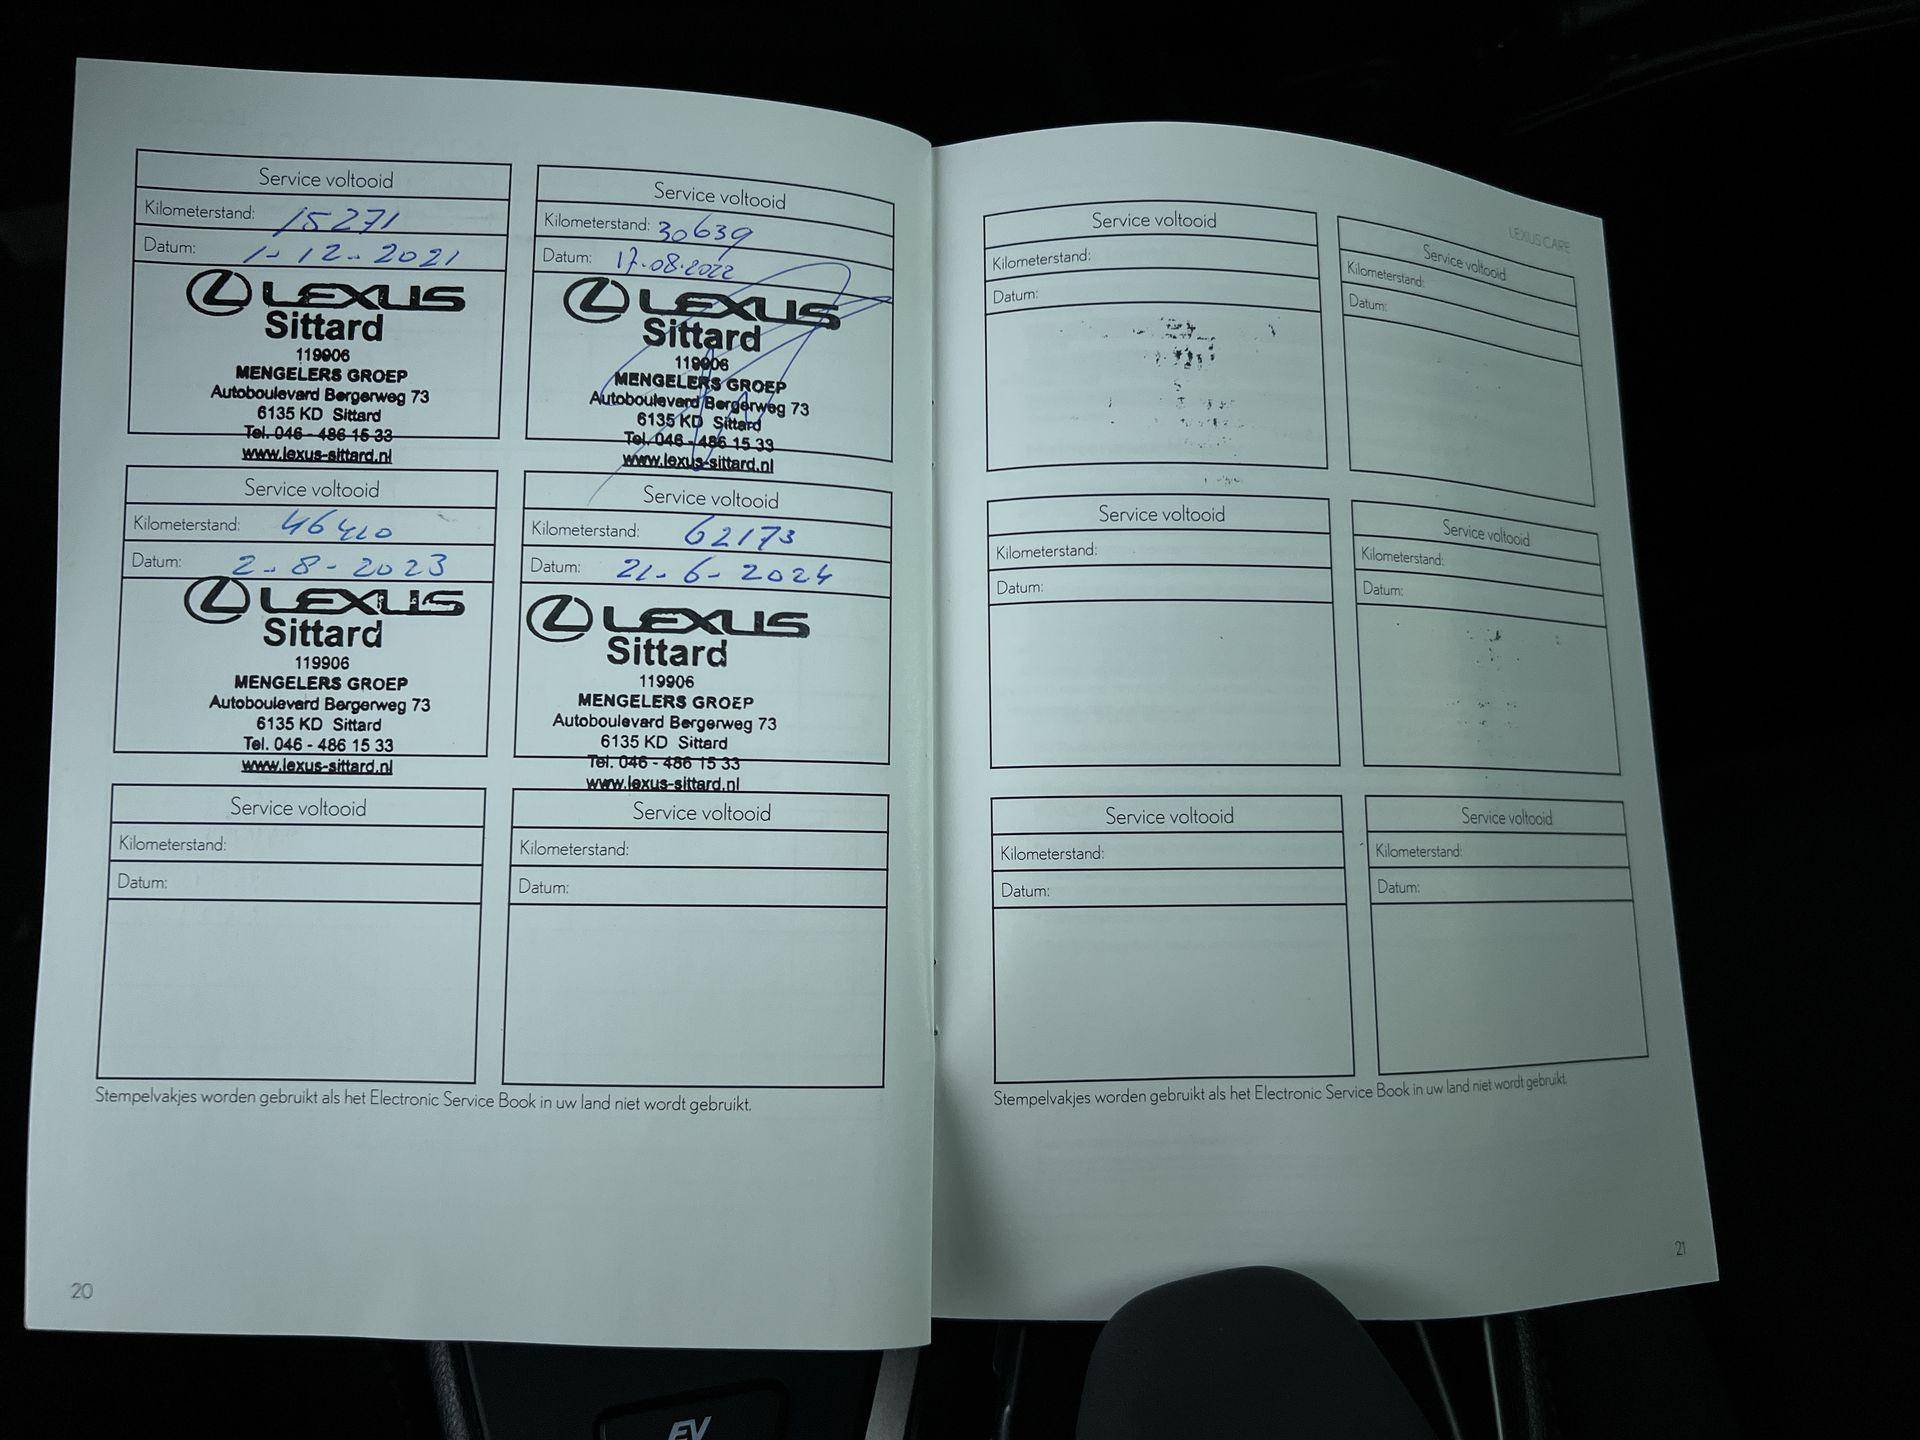 Service voltooid
Kilometerstand: 15271
Datum: 1-12-2021
LEXUS
Sittard
119906
MENGELERS GROEP
Autoboulevard Bergerweg 73
6135 KD Sittard
Tel. 046 - 486 15 33
www.lexus-sittard.nl
Service voltooid
Kilometerstand: 30639
Datum: 17-08-2022
LEXUS
Sittard
119906
MENGELERS GROEP
Autoboulevard Bergerweg 73
6135 KD Sittard
Tel. 046 - 486 15 33
www.lexus-sittard.nl
Service voltooid
Kilometerstand: 46410
Datum: 2-8-2023
LEXUS
Sittard
119906
MENGELERS GROEP
Autoboulevard Bergerweg 73
6135 KD Sittard
Tel. 046 - 486 15 33
www.lexus-sittard.nl
Service voltooid
Kilometerstand: 62173
Datum: 21-6-2024
LEXUS
Sittard
119906
MENGELERS GROEP
Autoboulevard Bergerweg 73
6135 KD Sittard
Tel. 046 - 486 15 33
www.lexus-sittard.nl
Service voltooid
Kilometerstand:
Datum:
Service voltooid
Kilometerstand:
Datum:
Stempelvakjes worden gebruikt als het Electronic Service Book in uw land niet wordt gebruikt.
20
LEXUS CARE
Service voltooid
Kilometerstand:
Datum:
Service voltooid
Kilometerstand:
Datum:
Service voltooid
Kilometerstand:
Datum:
Service voltooid
Kilometerstand:
Datum:
Service voltooid
Kilometerstand:
Datum:
Service voltooid
Kilometerstand:
Datum:
Stempelvakjes worden gebruikt als het Electronic Service Book in uw land niet wordt gebruikt.
21
EV